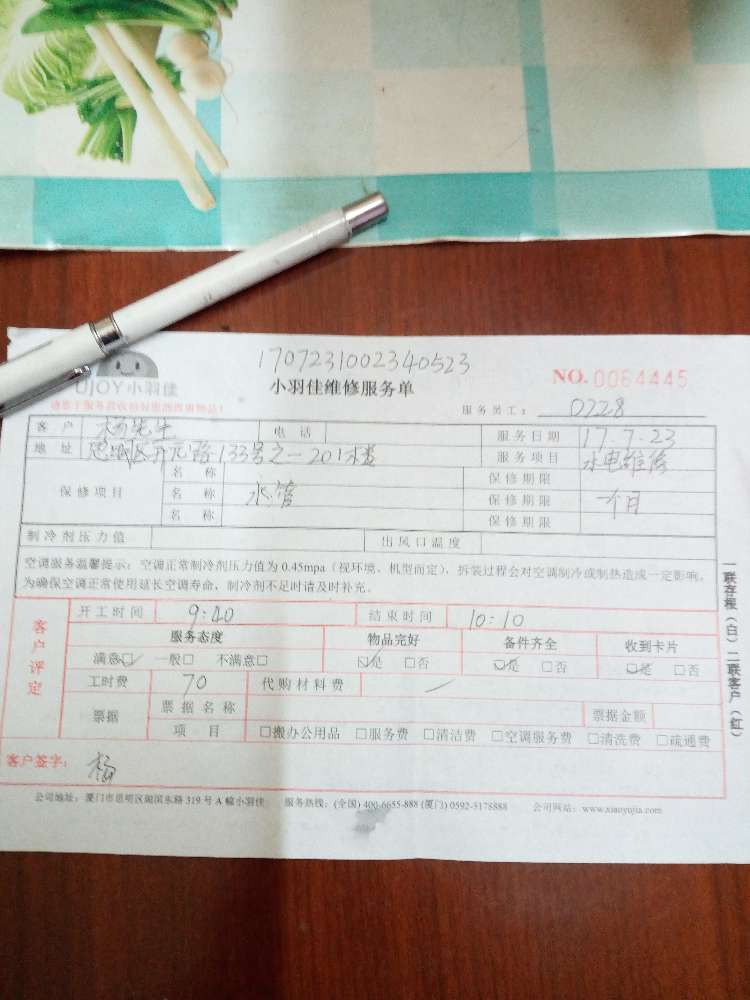 1707231002340523
UJOY小羽佳
小羽佳维修服务单
NO.0064445
服务员工: 0728
客户 杨先生 电话 服务日期 17.7.23
地址 思明区开元路133号之一201 服务项目 水电维修
保修项目
名称 保修期限
名称 水管 保修期限 一个月
名称 保修期限
制冷剂压力值 出风口温度
空调服务温馨提示：空调正常制冷剂压力值为 0.45mpa（视环境、机型而定），拆装过程会对空调制冷或制热造成一定影响，
为确保空调正常使用延长空调寿命，制冷剂不足时请及时补充。
客户评定
开工时间 9:40 结束时间 10:10
服务态度 物品完好 备件齐全 收到卡片
满意☑ 一般□ 不满意□ ☑是 □否 ☑是 □否 ☑是 □否
工时费 70 代购材料费 /
票据 票据名称 票据金额
项目 □搬办公用品 □服务费 □清洁费 □空调服务费 □清洗费 □疏通费
客户签字: 杨
公司地址：厦门市思明区湖滨东路 319 号 A 幢小羽佳 服务热线：(全国) 400-6655-888 (厦门) 0592-5178888 公司网站：www.xiaoyujia.com
一联存根（白）二联客户（红）